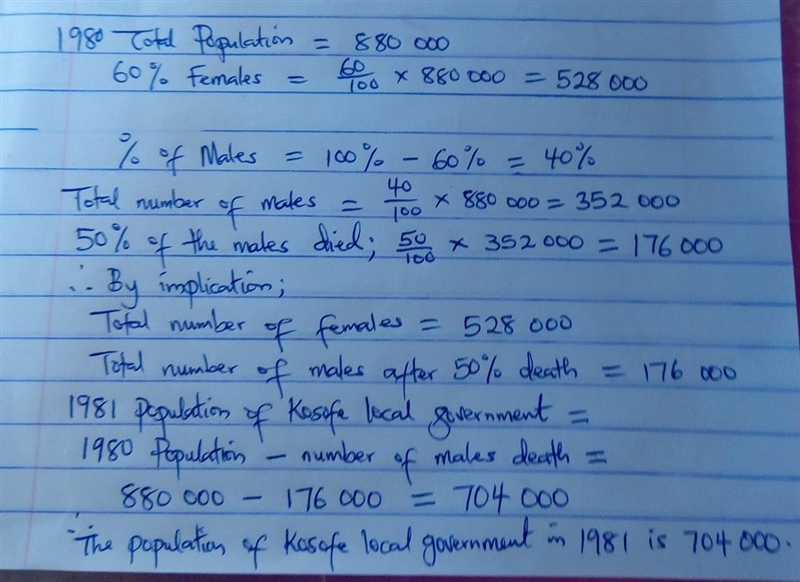 1980 Total Population = 880 000
60% Females = 60/100 × 880 000 = 528 000
% of Males = 100% - 60% = 40%
Total number of males = 40/100 × 880 000 = 352 000
50% of the males died; 50/100 × 352 000 = 176 000
∴ By implication;
Total number of females = 528 000
Total number of males after 50% death = 176 000
1981 Population of Kosofe local government =
1980 Population - number of males death =
880 000 - 176 000 = 704 000
∴ The population of Kosofe local government in 1981 is 704 000.